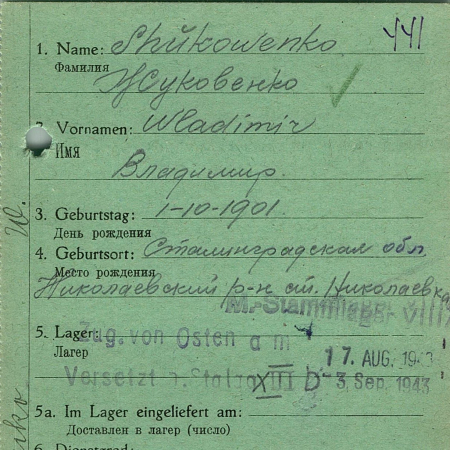 441
1. Name: Shukowenko
Фамилия
Жуковенко
2. Vornamen: Wladimir
Имя
Владимир.
3. Geburtstag: 1-10-1901.
День рождения
4. Geburtsort: Сталинградская обл
Место рождения
Николаевский р-н ст. Николаевка
M.-Stammlager VIII
5. Lager: Zug. von Osten am 17. AUG. 194
Лагер
Versetzt n. Stalag XIII D - 3. Sep. 1943
5a. Im Lager eingeliefert am:
Доставлен в лагер (число)
6. Dienstgrad: